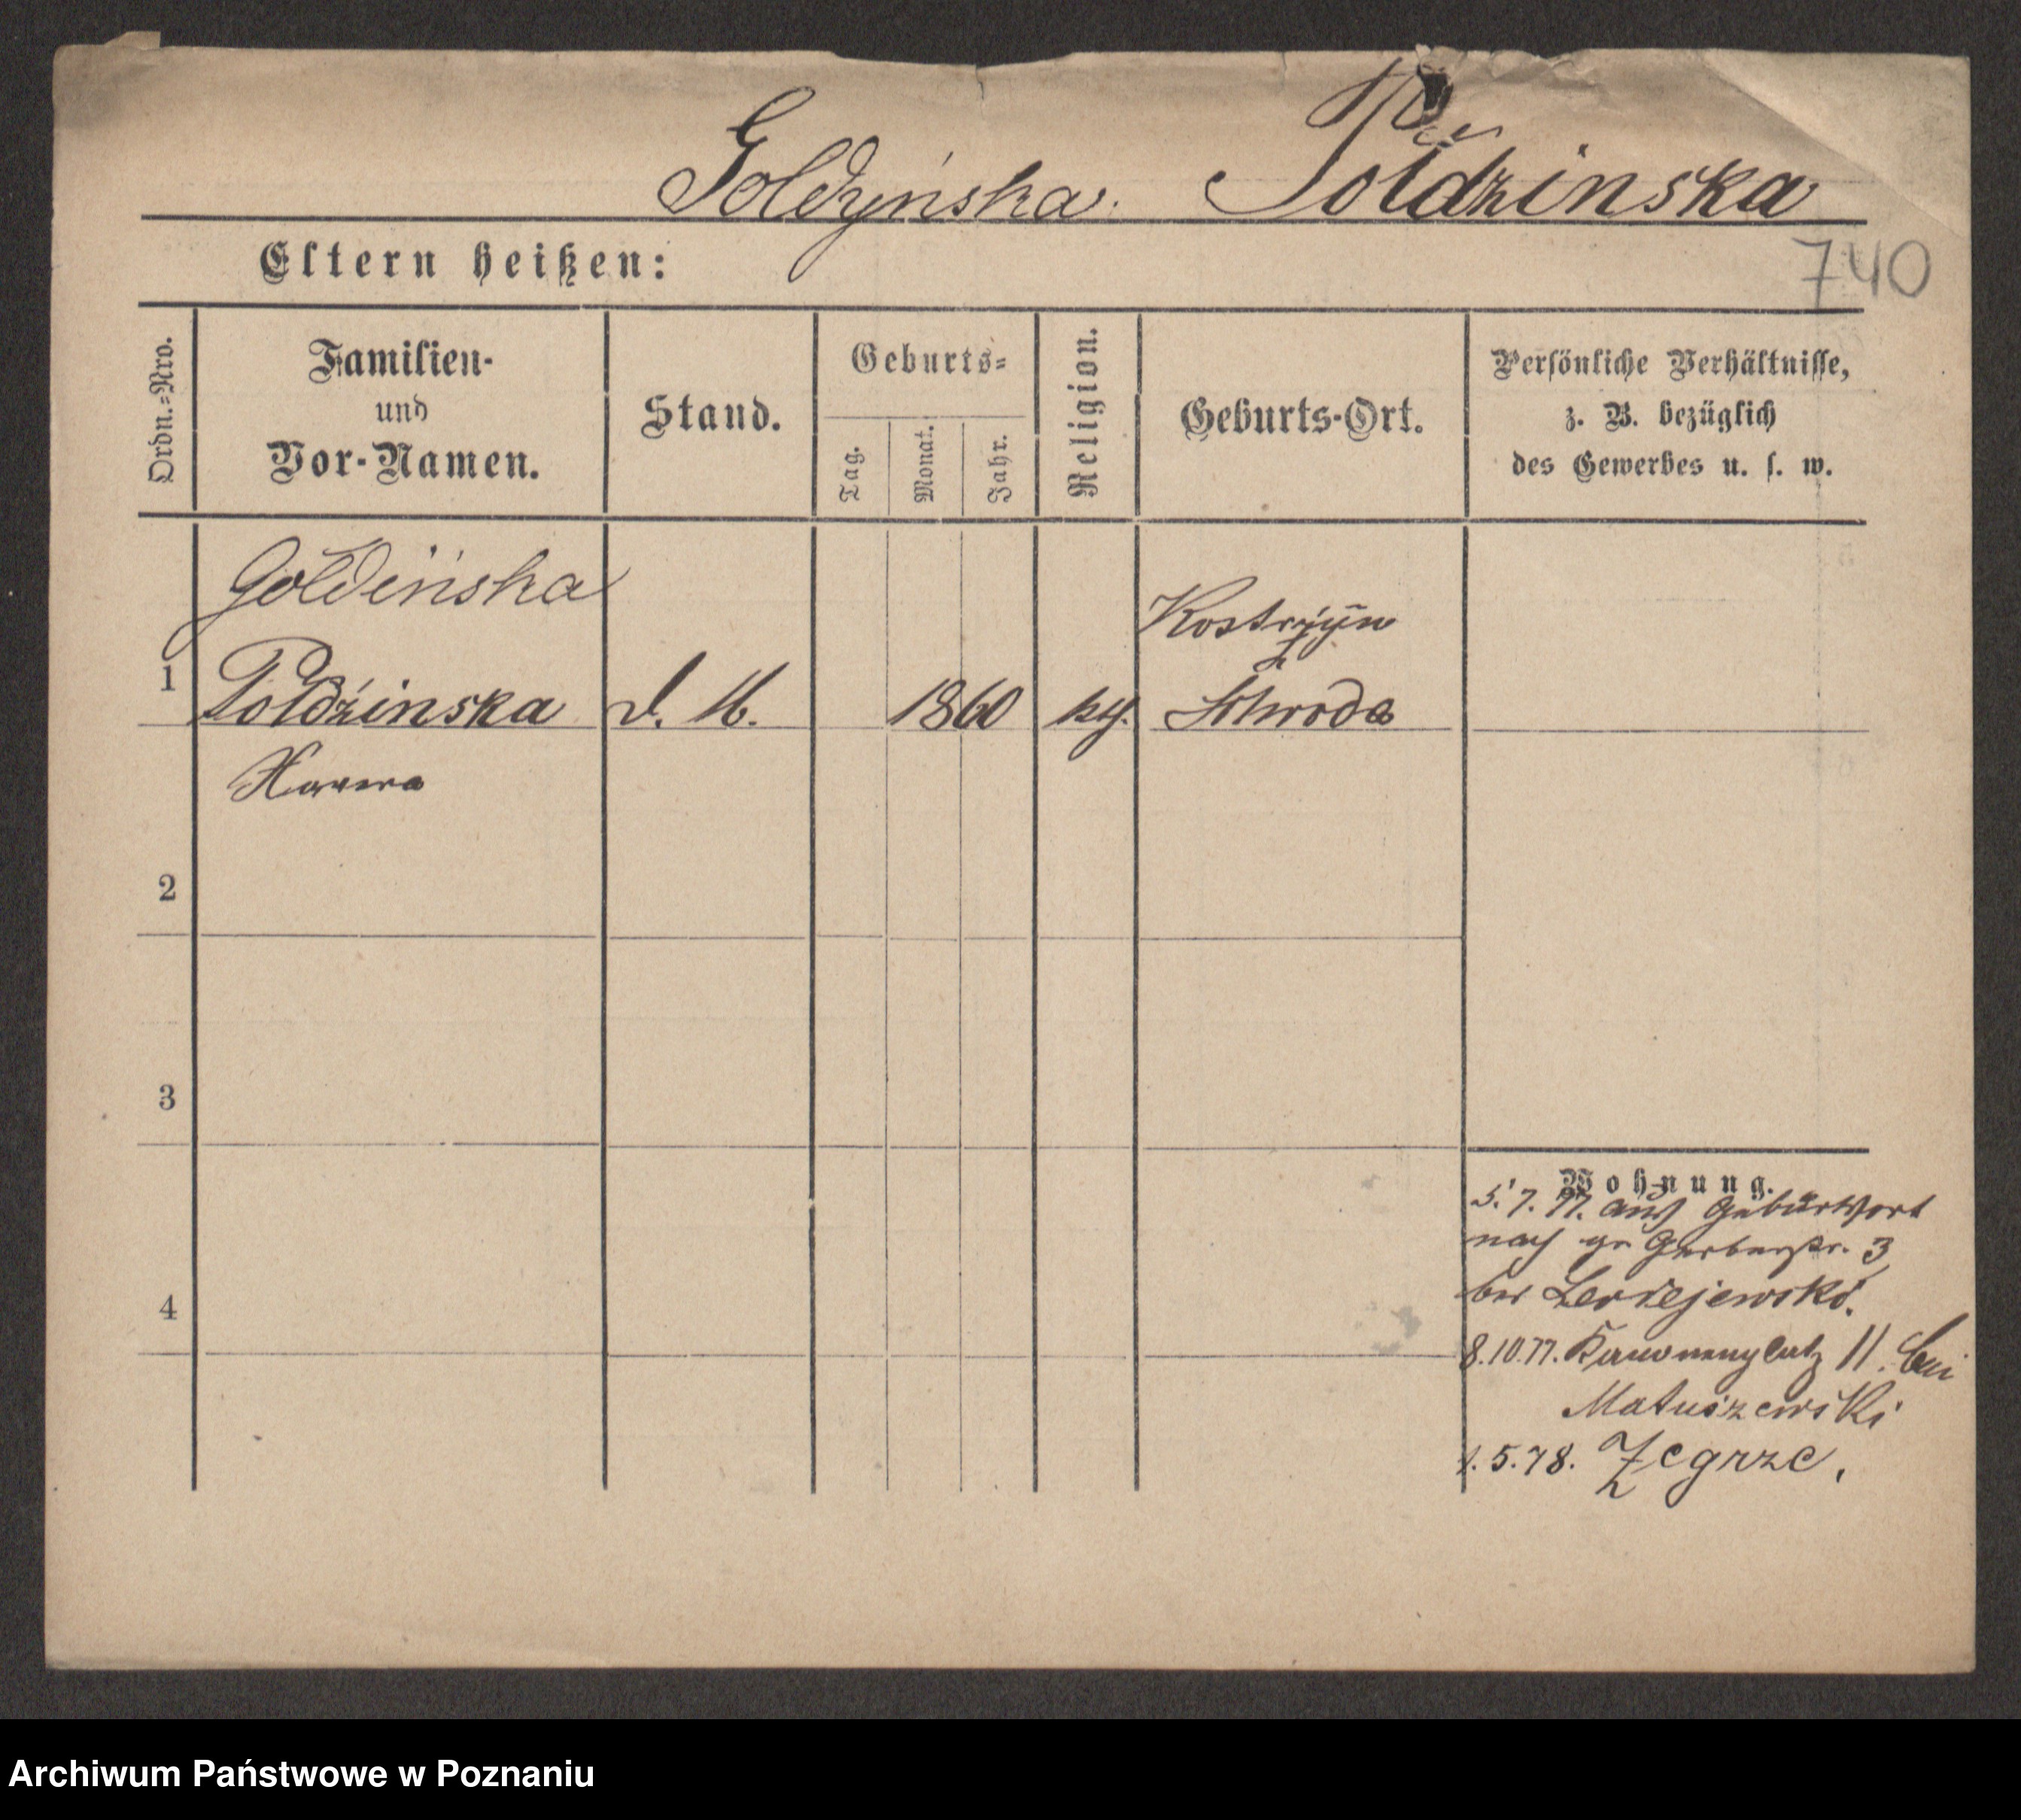 Goldyńska. Połdzinska
Eltern heißen:
740
Ordn.-Nro.
Familien-
und
Vor-Namen.
Stand.
Geburts-
Tag.
Monat.
Jahr.
Religion.
Geburts-Ort.
Persönliche Verhältnisse,
z. B. bezüglich
des Gewerbes u. s. w.
Goldinska
Kostrzyn
1 Połdzinska d. M. 1860 kth. Schroda
2
3
4
Wohnung.
5.7.77. aus Geburtsort
nach gr Gerberstr. 3
bei
8.10.77. 11. bei
Matuszewski
1.5.78. Zegrze.
Archiwum Państwowe w Poznaniu